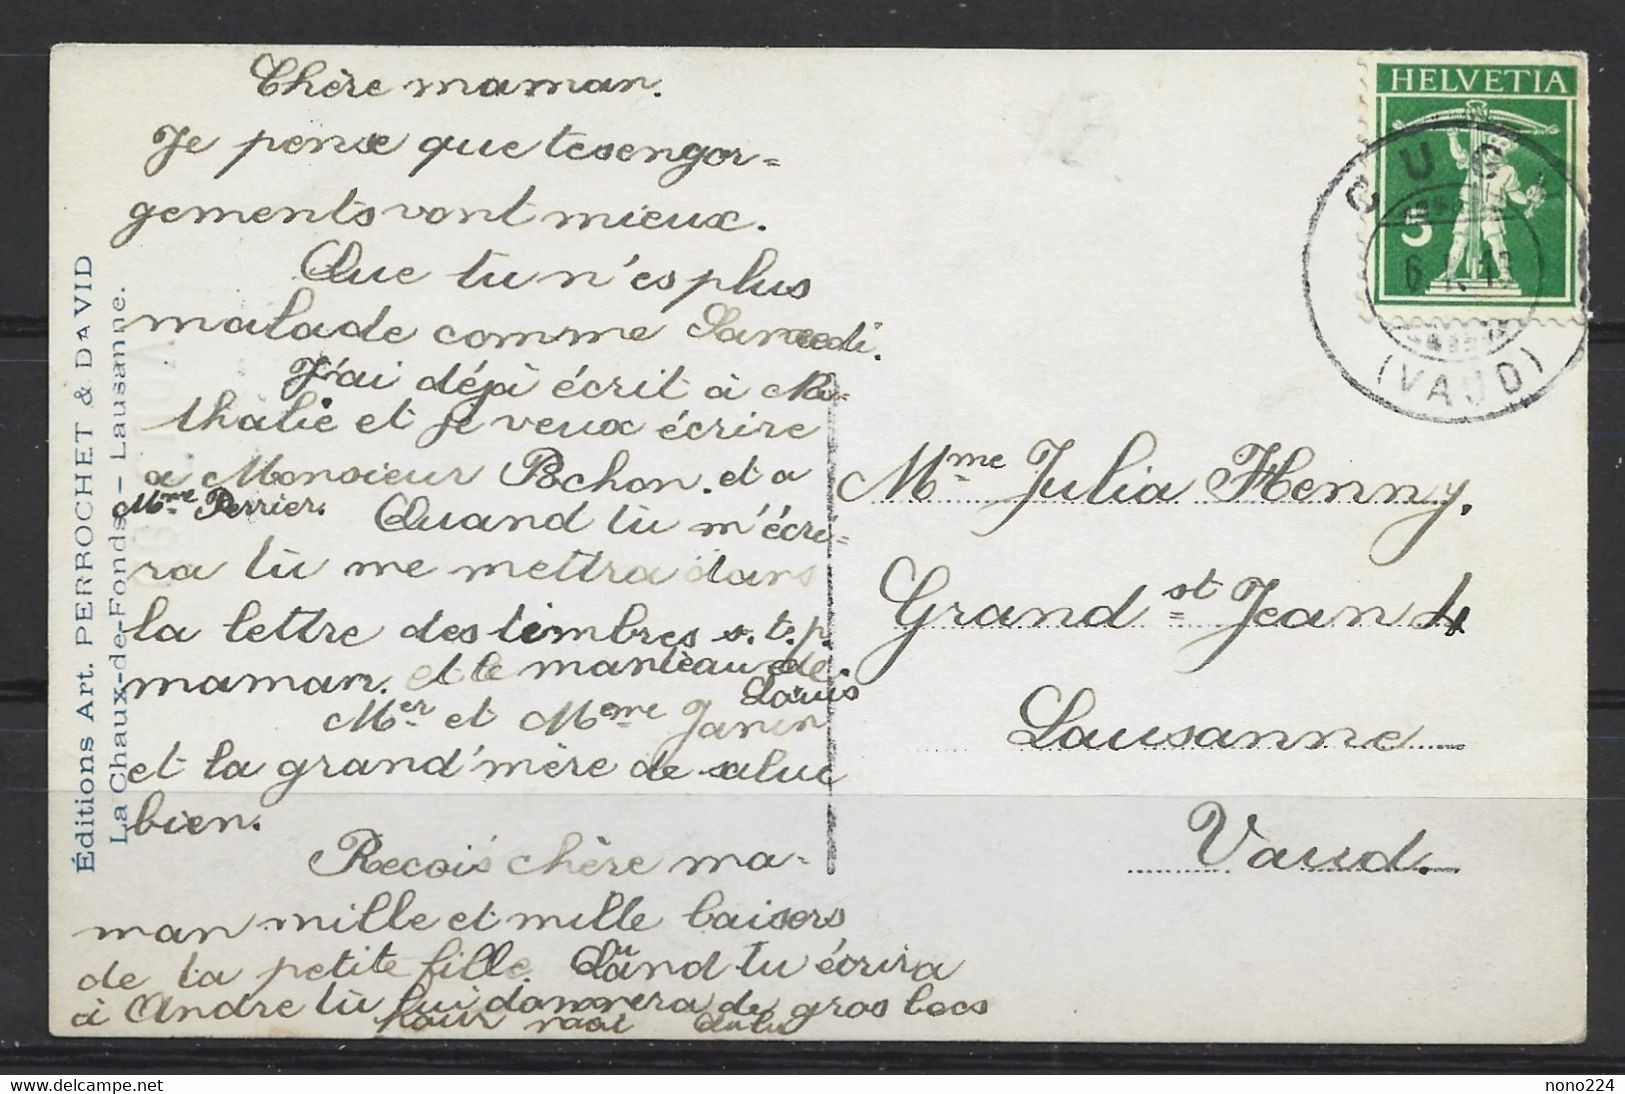 Chère maman.
Je pense que tes engor=
gements vont mieux.
Que tu n'es plus
malade comme Samedi.
J'ai déjà écrit à Na-
thalie et je veux écrire
a Monsieur Pochon. et a
Mme Perrier. Quand tù m'écri-
ra tù me mettra dans
la lettre des timbres s.t.p.
maman. et le manteau de
Louis
Mer et Meme Janin
et la grand'mère de salue
bien.
Recois chère ma-
man mille et mille baisers
de ta petite fille. Quand tu écrira
à Andre tù lui donnera de gros becs
pour moi
Éditions Art. PERROCHET & DAVID
La Chaux-de-Fonds – Lausanne.
HELVETIA
5
CUGY
(VAUD)
Mme Julia Henny.
Grand st Jean 4
Lausanne
Vaud.
nono224